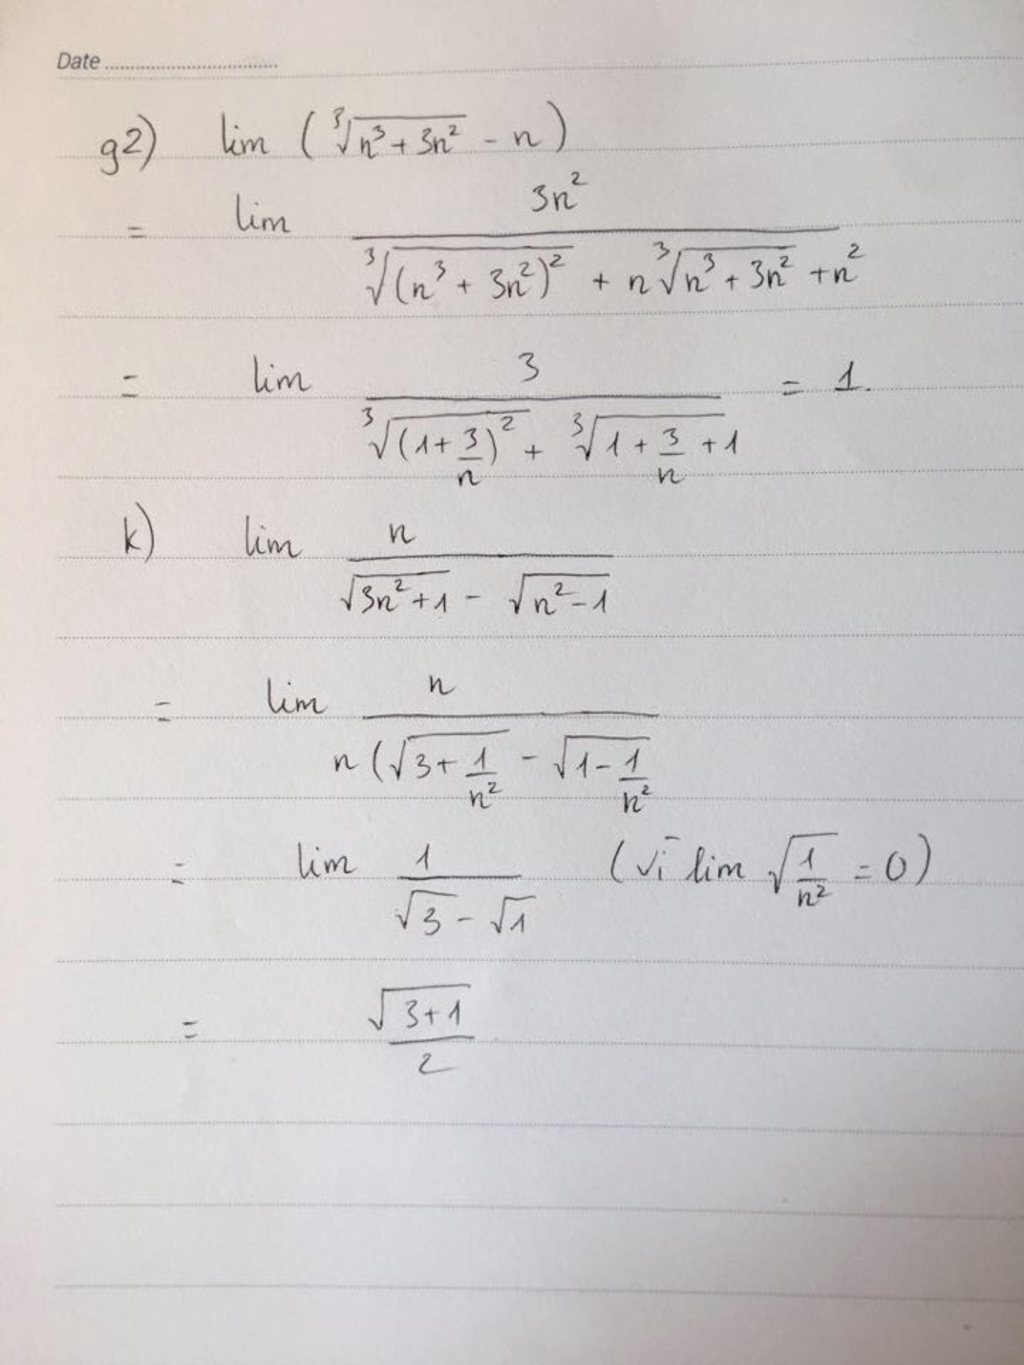 Date
g2) lim (∛(n³ + 3n²) - n)
= lim 3n² / (∛((n³ + 3n²)²) + n∛(n³ + 3n²) + n²)
= lim 3 / (∛((1 + 3/n)²) + ∛(1 + 3/n + 1)) = 1.
k) lim n / (√(3n² + 1) - √(n² - 1))
= lim n / (n (√(3 + 1/n²) - √(1 - 1/n²)
= lim 1 / (√3 - √1) (vì lim √(1/n²) = 0)
= √(3+1) / 2